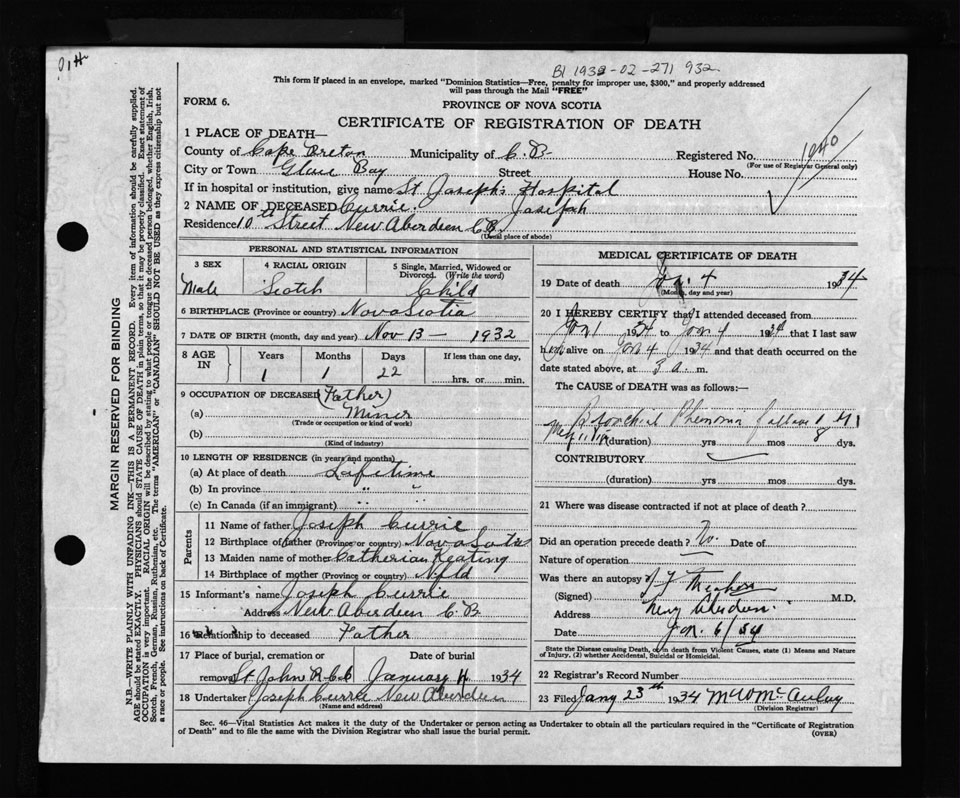 B1 1933-02-271 932
This form if placed in an envelope, marked "Dominion Statistics—Free, penalty for improper use, $300," and properly addressed
will pass through the Mail "FREE"
FORM 6.
PROVINCE OF NOVA SCOTIA
CERTIFICATE OF REGISTRATION OF DEATH
1 PLACE OF DEATH—
County of Cape Breton Municipality of C.B. Registered No.
(For use of Registrar General only)
1040
City or Town Glace Bay Street House No.
If in hospital or institution, give name St Joseph's Hospital
2 NAME OF DECEASED Currie. Joseph
Residence 10th Street New Aberdeen C.B.
(Usual place of abode)
PERSONAL AND STATISTICAL INFORMATION
3 SEX 4 RACIAL ORIGIN 5 Single, Married, Widowed or Divorced. (Write the word)
Male Scotch Child
6 BIRTHPLACE (Province or country) Nova Scotia
7 DATE OF BIRTH (month, day and year) Nov 13 - 1932
8 AGE IN Years Months Days If less than one day,
1 1 22 hrs. or min.
9 OCCUPATION OF DECEASED (Father)
(a) Miner
(Trade or occupation or kind of work)
(b)
(Kind of industry)
10 LENGTH OF RESIDENCE (in years and months)
(a) At place of death Lifetime
(b) In province " "
(c) In Canada (if an immigrant) " "
Parents
11 Name of father Joseph Currie
12 Birthplace of father (Province or country) Nova Scotia
13 Maiden name of mother Catherian Keating
14 Birthplace of mother (Province or country) Nfld
15 Informant's name Joseph Currie
Address New Aberdeen C.B
16 Relationship to deceased Father
17 Place of burial, cremation or Date of burial
removal St. John R.C.C January 4 1934
18 Undertaker Joseph Currie New Aberdeen
(Name and address)
MEDICAL CERTIFICATE OF DEATH
19 Date of death Jan. 4 1934
(Month, day and year)
20 I HEREBY CERTIFY that I attended deceased from
Jan 1 1934 to Jan 4 1934 that I last saw
him alive on Jan 4 1934 and that death occurred on the
date stated above, at 3 a. m.
The CAUSE OF DEATH was as follows:—
Bronchial
(duration) yrs mos 8 dys.
CONTRIBUTORY
(duration) yrs mos dys.
21 Where was disease contracted if not at place of death?
Did an operation precede death? No. Date of
Nature of operation
Was there an autopsy
(Signed) M.D.
Address New Aberdeen.
Date Jan. 6/34
State the Disease causing Death, or in death from Violent Causes, state (1) Means and Nature
of Injury, (2) whether Accidental, Suicidal or Homicidal.
22 Registrar's Record Number
23 Filed Jany 23th 1934 M W McAuley
(Division Registrar)
Sec. 46—Vital Statistics Act makes it the duty of the Undertaker or person acting as Undertaker to obtain all the particulars required in the "Certificate of Registration
of Death" and to file the same with the Division Registrar who shall issue the burial permit.
(OVER)
MARGIN RESERVED FOR BINDING
N.B.—WRITE PLAINLY WITH UNFADING INK—THIS IS A PERMANENT RECORD. Every item of information should be carefully supplied.
AGE should be stated EXACTLY. PHYSICIANS should STATE CAUSE OF DEATH in plain terms, so that it may be properly classified. Exact statement of
OCCUPATION is very important. RACIAL ORIGIN will be described by stating to what people or tongue the deceased person belonged, whether English, Irish,
Scotch, French, German, Russian, Ruthenian, etc. The terms "AMERICAN" or "CANADIAN" SHOULD NOT BE USED as they express citizenship but not
a race or people. See instructions on back of Certificate.